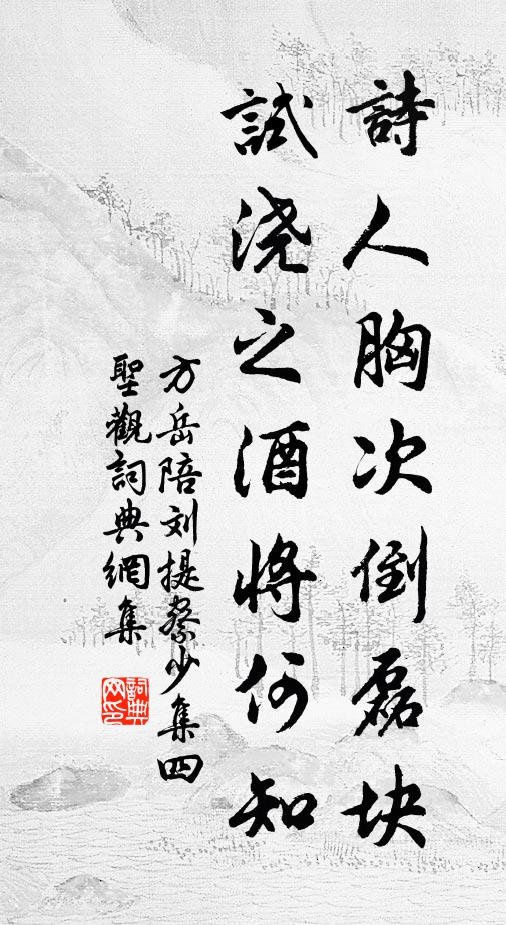 詩人胸次倒磊块
試浇之酒將何知
方岳陪刘提察少集四
聖觀詞典網集
詞典
网印